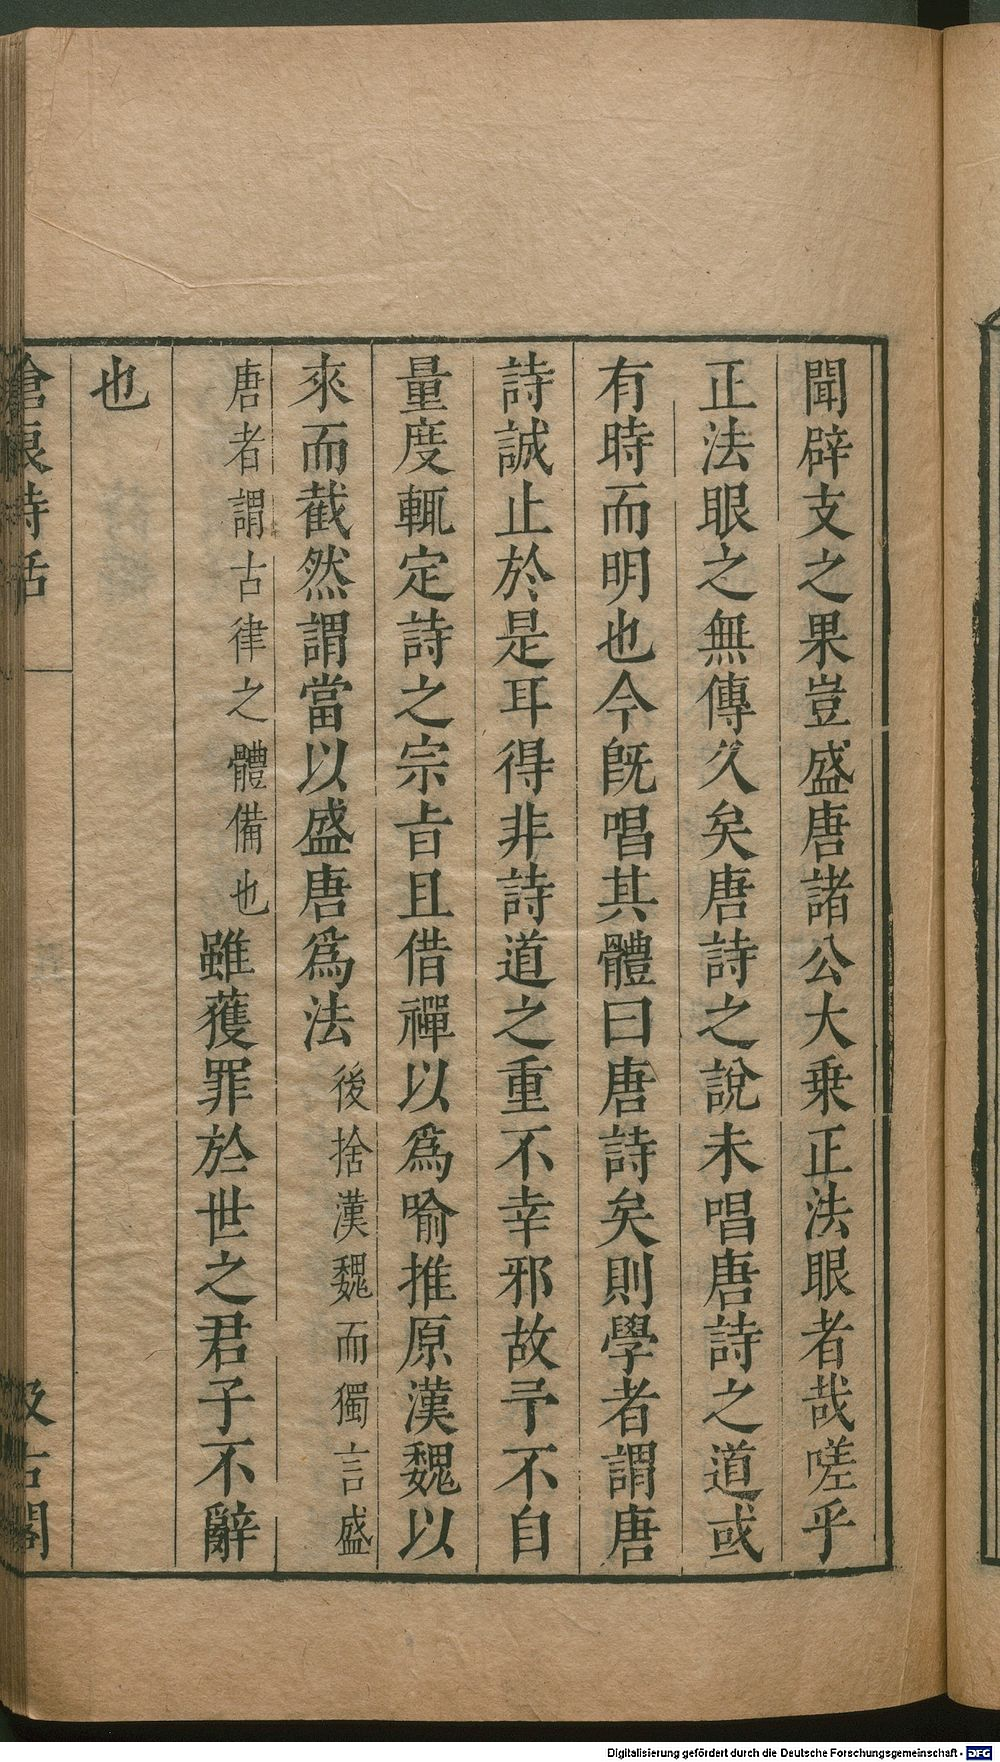 聞辟支之果豈盛唐諸公大乗正法眼者哉嗟乎
正法眼之無傳久矣唐詩之說未唱唐詩之道或
有時而明也今旣唱其體曰唐詩矣則學者謂唐
詩誠止於是耳得非詩道之重不幸邪故予不自
量度輒定詩之宗旨且借禪以爲喻推原漢魏以
來而截然謂當以盛唐爲法後捨漢魏而獨言盛
唐者謂古律之體備也雖獲罪於世之君子不辭
也
滄浪詩話
汲古閣
Digitalisierung gefördert durch die Deutsche Forschungsgemeinschaft - DFG